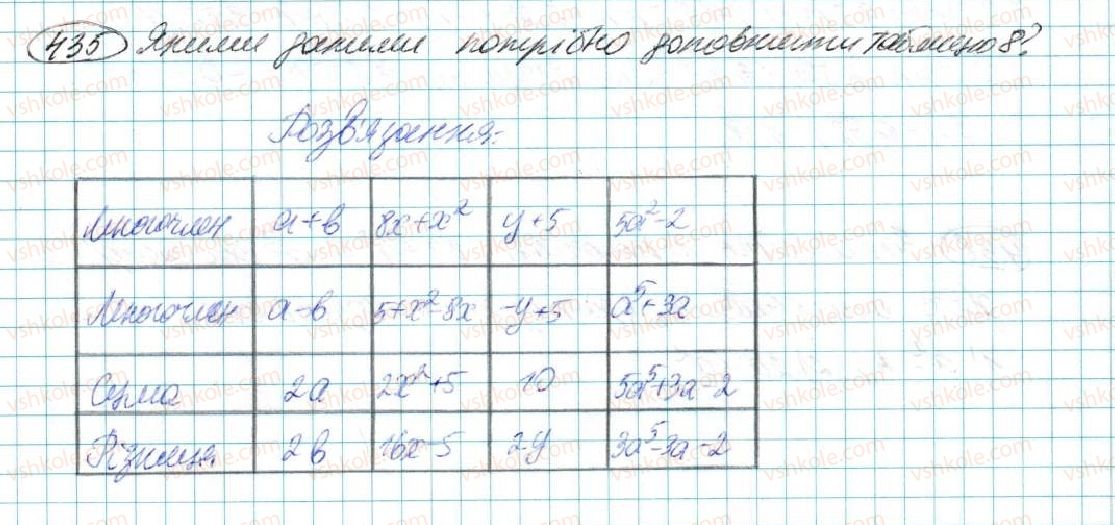 435 Якими даними потрібно доповнити таблицю 8?
Розв'язання:
Многочлен a+b 8x+x² y+5 5a²-2
Многочлен a-b 5+x²-8x -y+5 a⁵+3a
Сума 2a 2x²+5 10 5a⁵+3a-2
Різниця 2b 16x-5 2y 3a⁵-3a-2